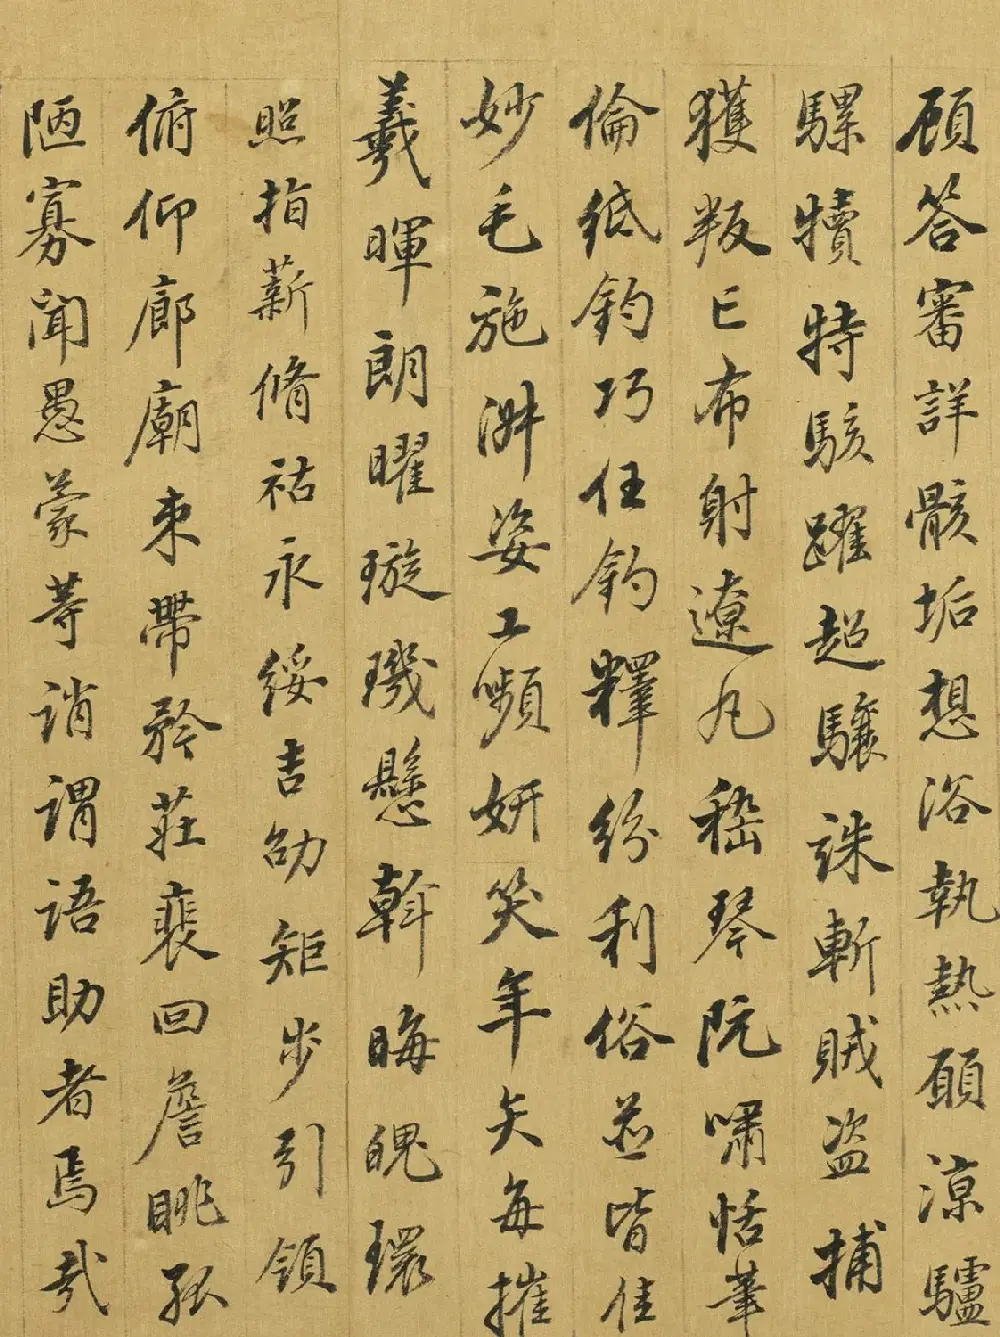 顧答審詳骸垢想浴執熱願涼驢
騾犢特駭躍超驤誅斬賊盜捕
獲叛亡布射遼丸嵇琴阮嘯恬筆
倫紙鈞巧任釣釋紛利俗並皆佳
妙毛施淑姿工嚬妍笑年矢每摧
羲暉朗曜璇璣懸斡晦魄環
照指薪脩祜永綏吉劭矩步引領
俯仰廊廟束帶矜莊裵回詹眺孤
陋寡聞愚蒙等誚謂語助者焉哉